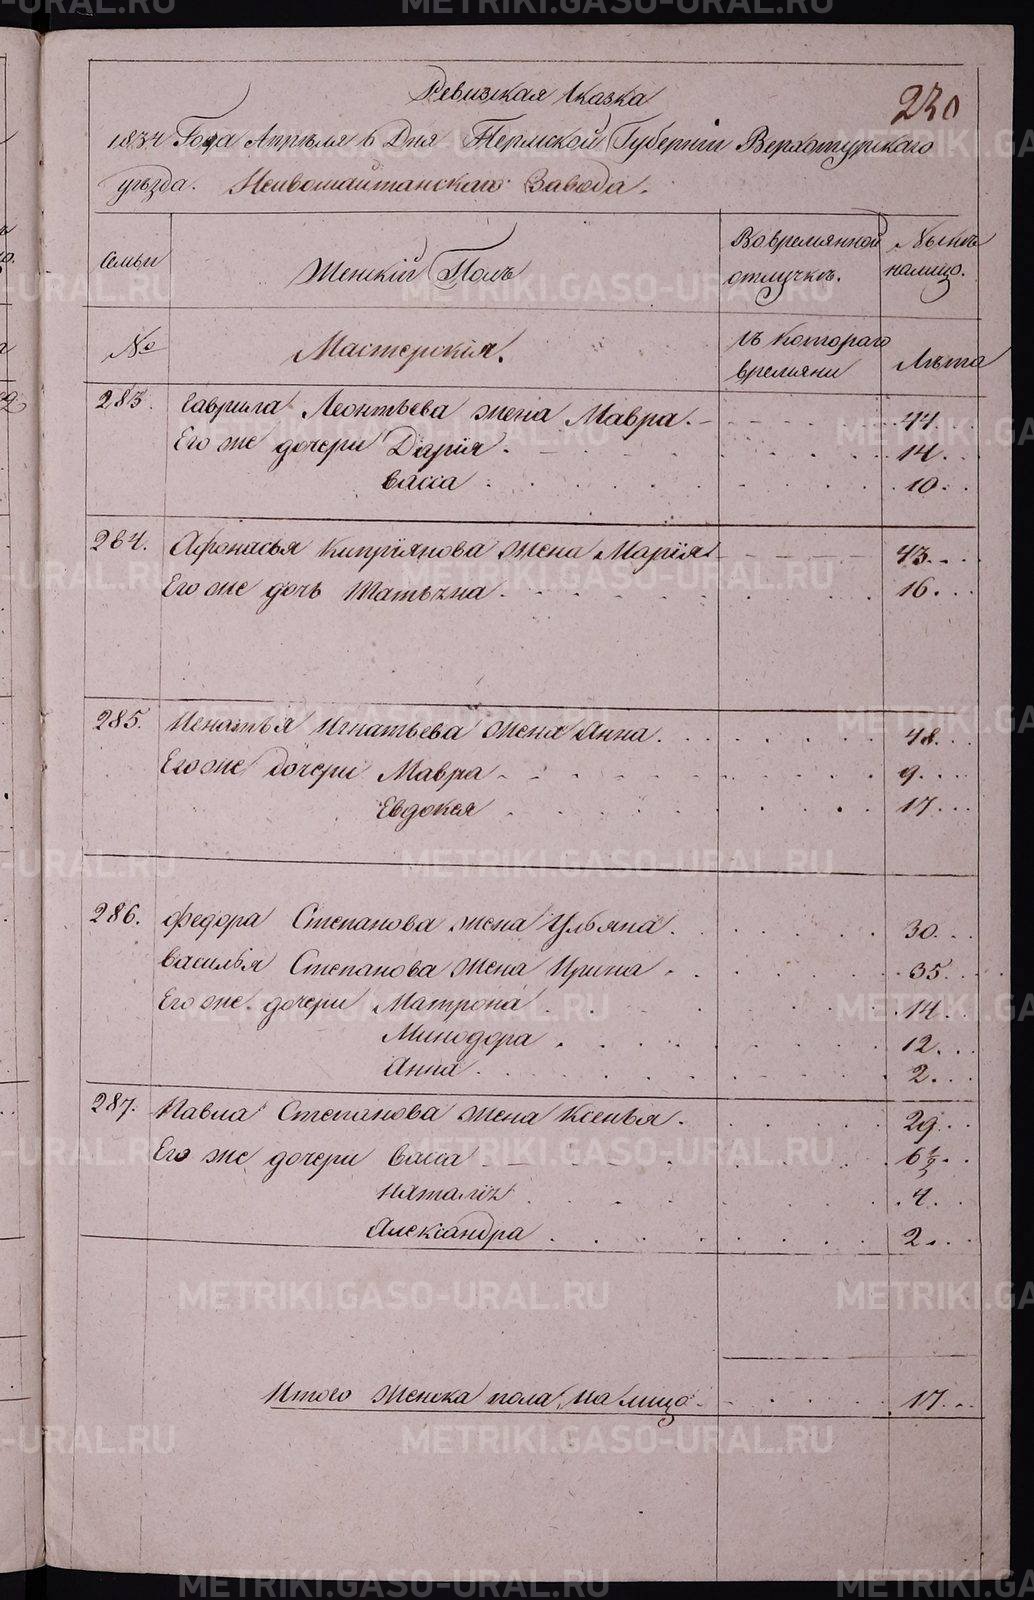 Ревизкая Сказка
230
1834 Года Апреля 6 Дня Пермской Губернiи Верхотурскаго
уъзда. Нейвошайтанскаго Завода.
Семьи
Женскiй Полъ
Во времянной отлучкъ.
Нынъ на лицо.
№
Мастерскiя.
съ котораго времяни
Лъта
283. Гаврила Леонтьева жена Мавра. 44.
Его же дочери Дарiя. 14.
Васса 10.
284. Афонасья Кипрiянова жена Марiя 43.
Его же дочь Татьяна. 16.
285. Игнатья Игнатьева жена Анна. 48.
Его же дочери Мавра 9.
Евдокея 17.
286. Федора Степанова жена Ульяна. 30.
Василья Степанова жена Ирина 35.
Его же дочери Матрона 14.
Минодора 12.
Анна 2.
287. Павла Степанова жена Ксенья. 29.
Его же дочери Васса 6 1/2
Наталiя 4.
Александра 2.
Итого женска пола на лицо 17.
METRIKI.GASO-URAL.RU